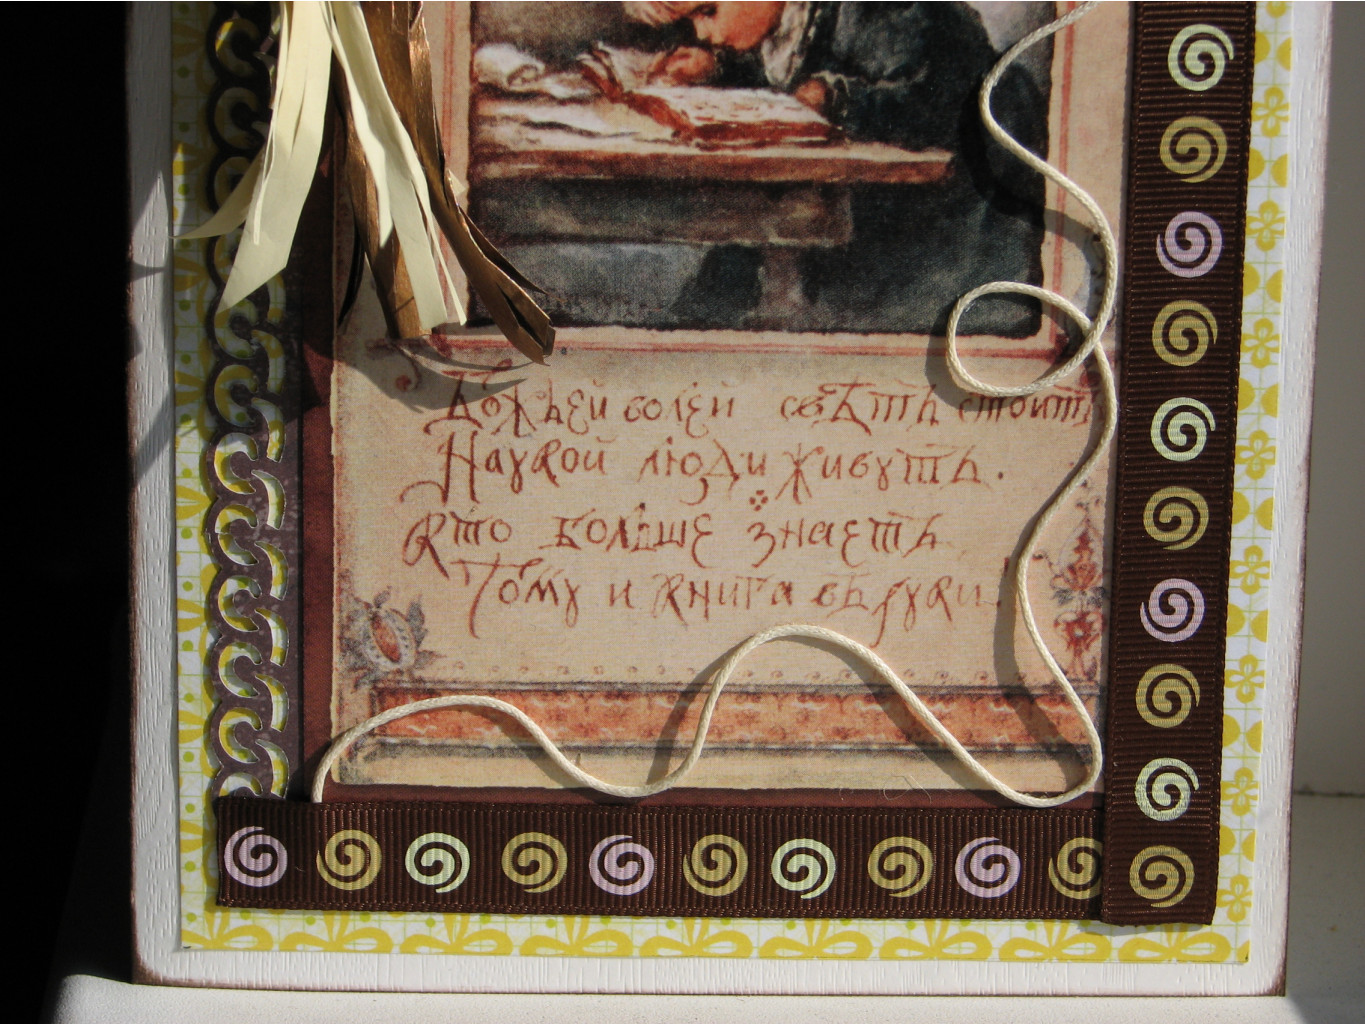 Божьей волей свѣтъ стоитъ
Наукой люди живутъ.
Кто больше знаетъ
Тому и книга въ руки!